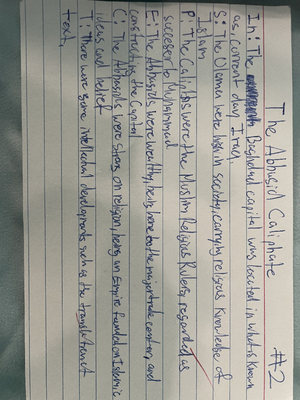 The Abbasid Caliphate #2
In: The Baghdad capital was located in what is known
as, current day Iraq.
S: The Ulama were high in society, carrying religious knowledge of
Islam
P: The Caliphs were the Muslim Religious Rulers, regarded as
succesor to Muhammad
E: The Abbasids were wealthy, being home to the major trade center, and
construct is the Capital
C: The Abbasids were strong on religion, being an Empire founded on Islamic
ideas and belief
T: There were some intellectual developments such as the translation of
text,